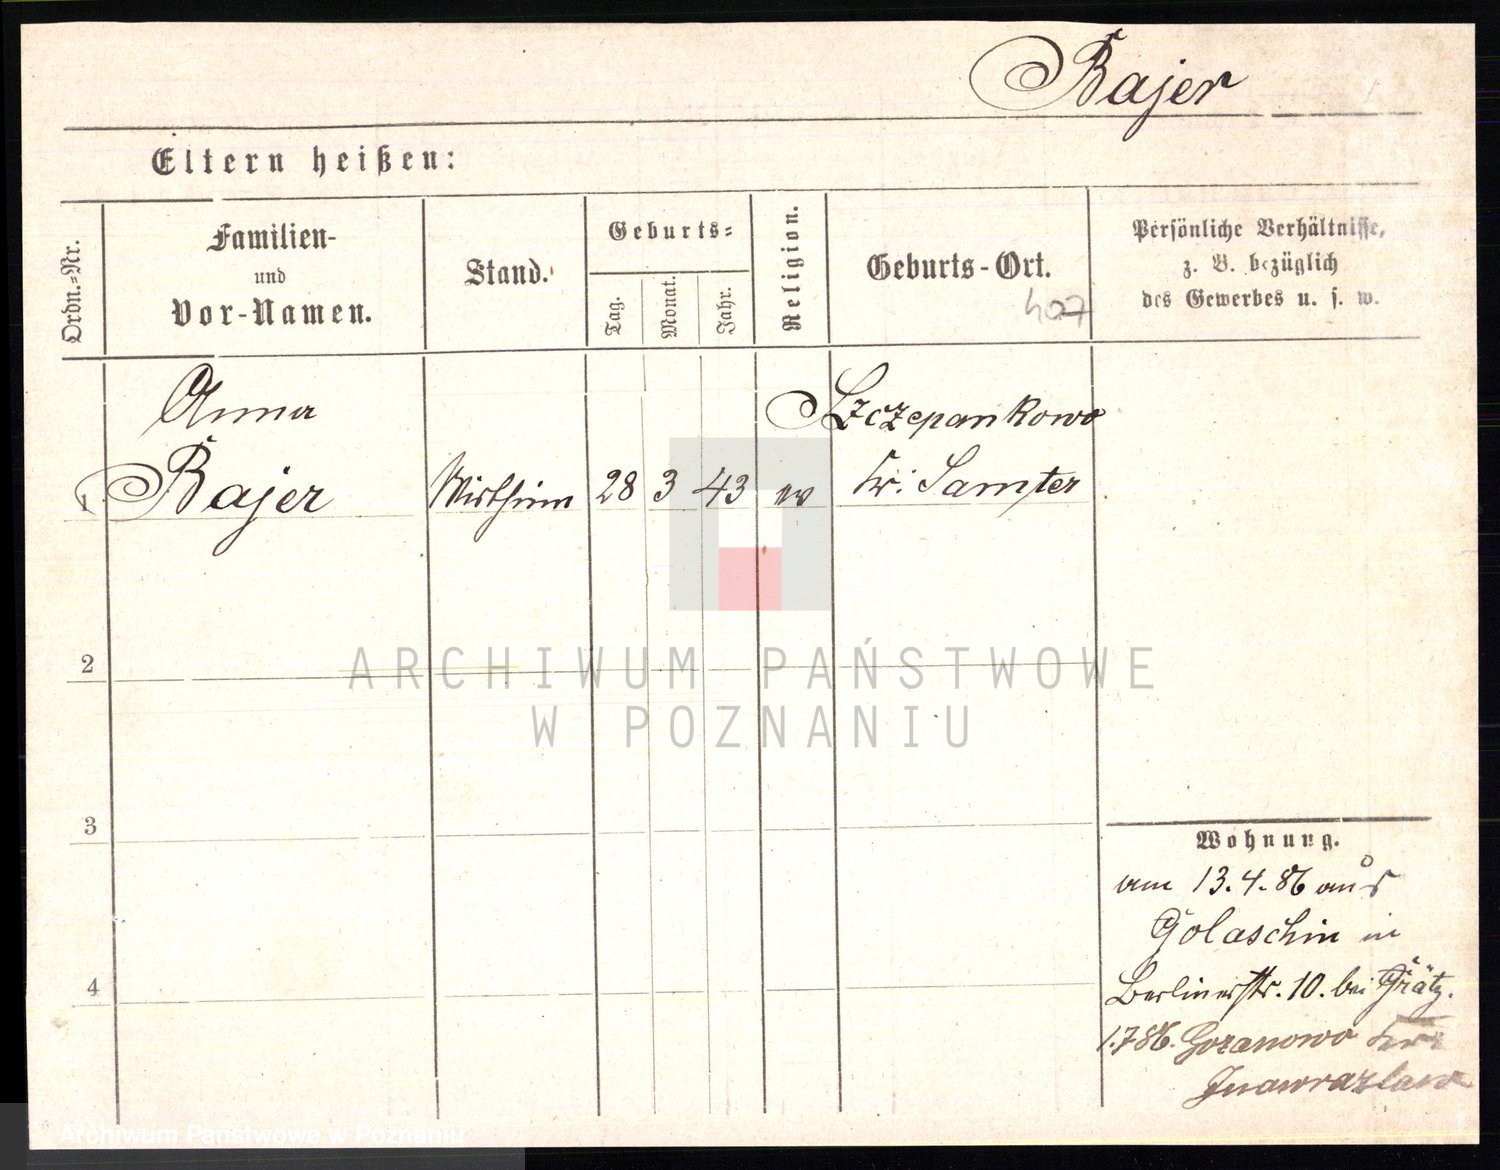 Bajer
Eltern heißen:
Ordn.-Nr.
Familien-
und
Vor-Namen.
Stand.
Geburts-
Tag.
Monat.
Jahr.
Religion.
Geburts-Ort.
407
Persönliche Verhältnisse,
z. B. bezüglich
des Gewerbes u. s. w.
Anna
Szczepankowo
1 Bajer Wirthin 28 3 43 ev Kr. Samter
ARCHIWUM PAŃSTWOWE
W POZNANIU
2
3
4
Wohnung.
am 13.4.86 aus
Golaschin in
Berlinerstr. 10. bei Grätz.
1.7 86. Goranowo Kr:
Inowrazlaw
Archiwum Państwowe w Poznaniu